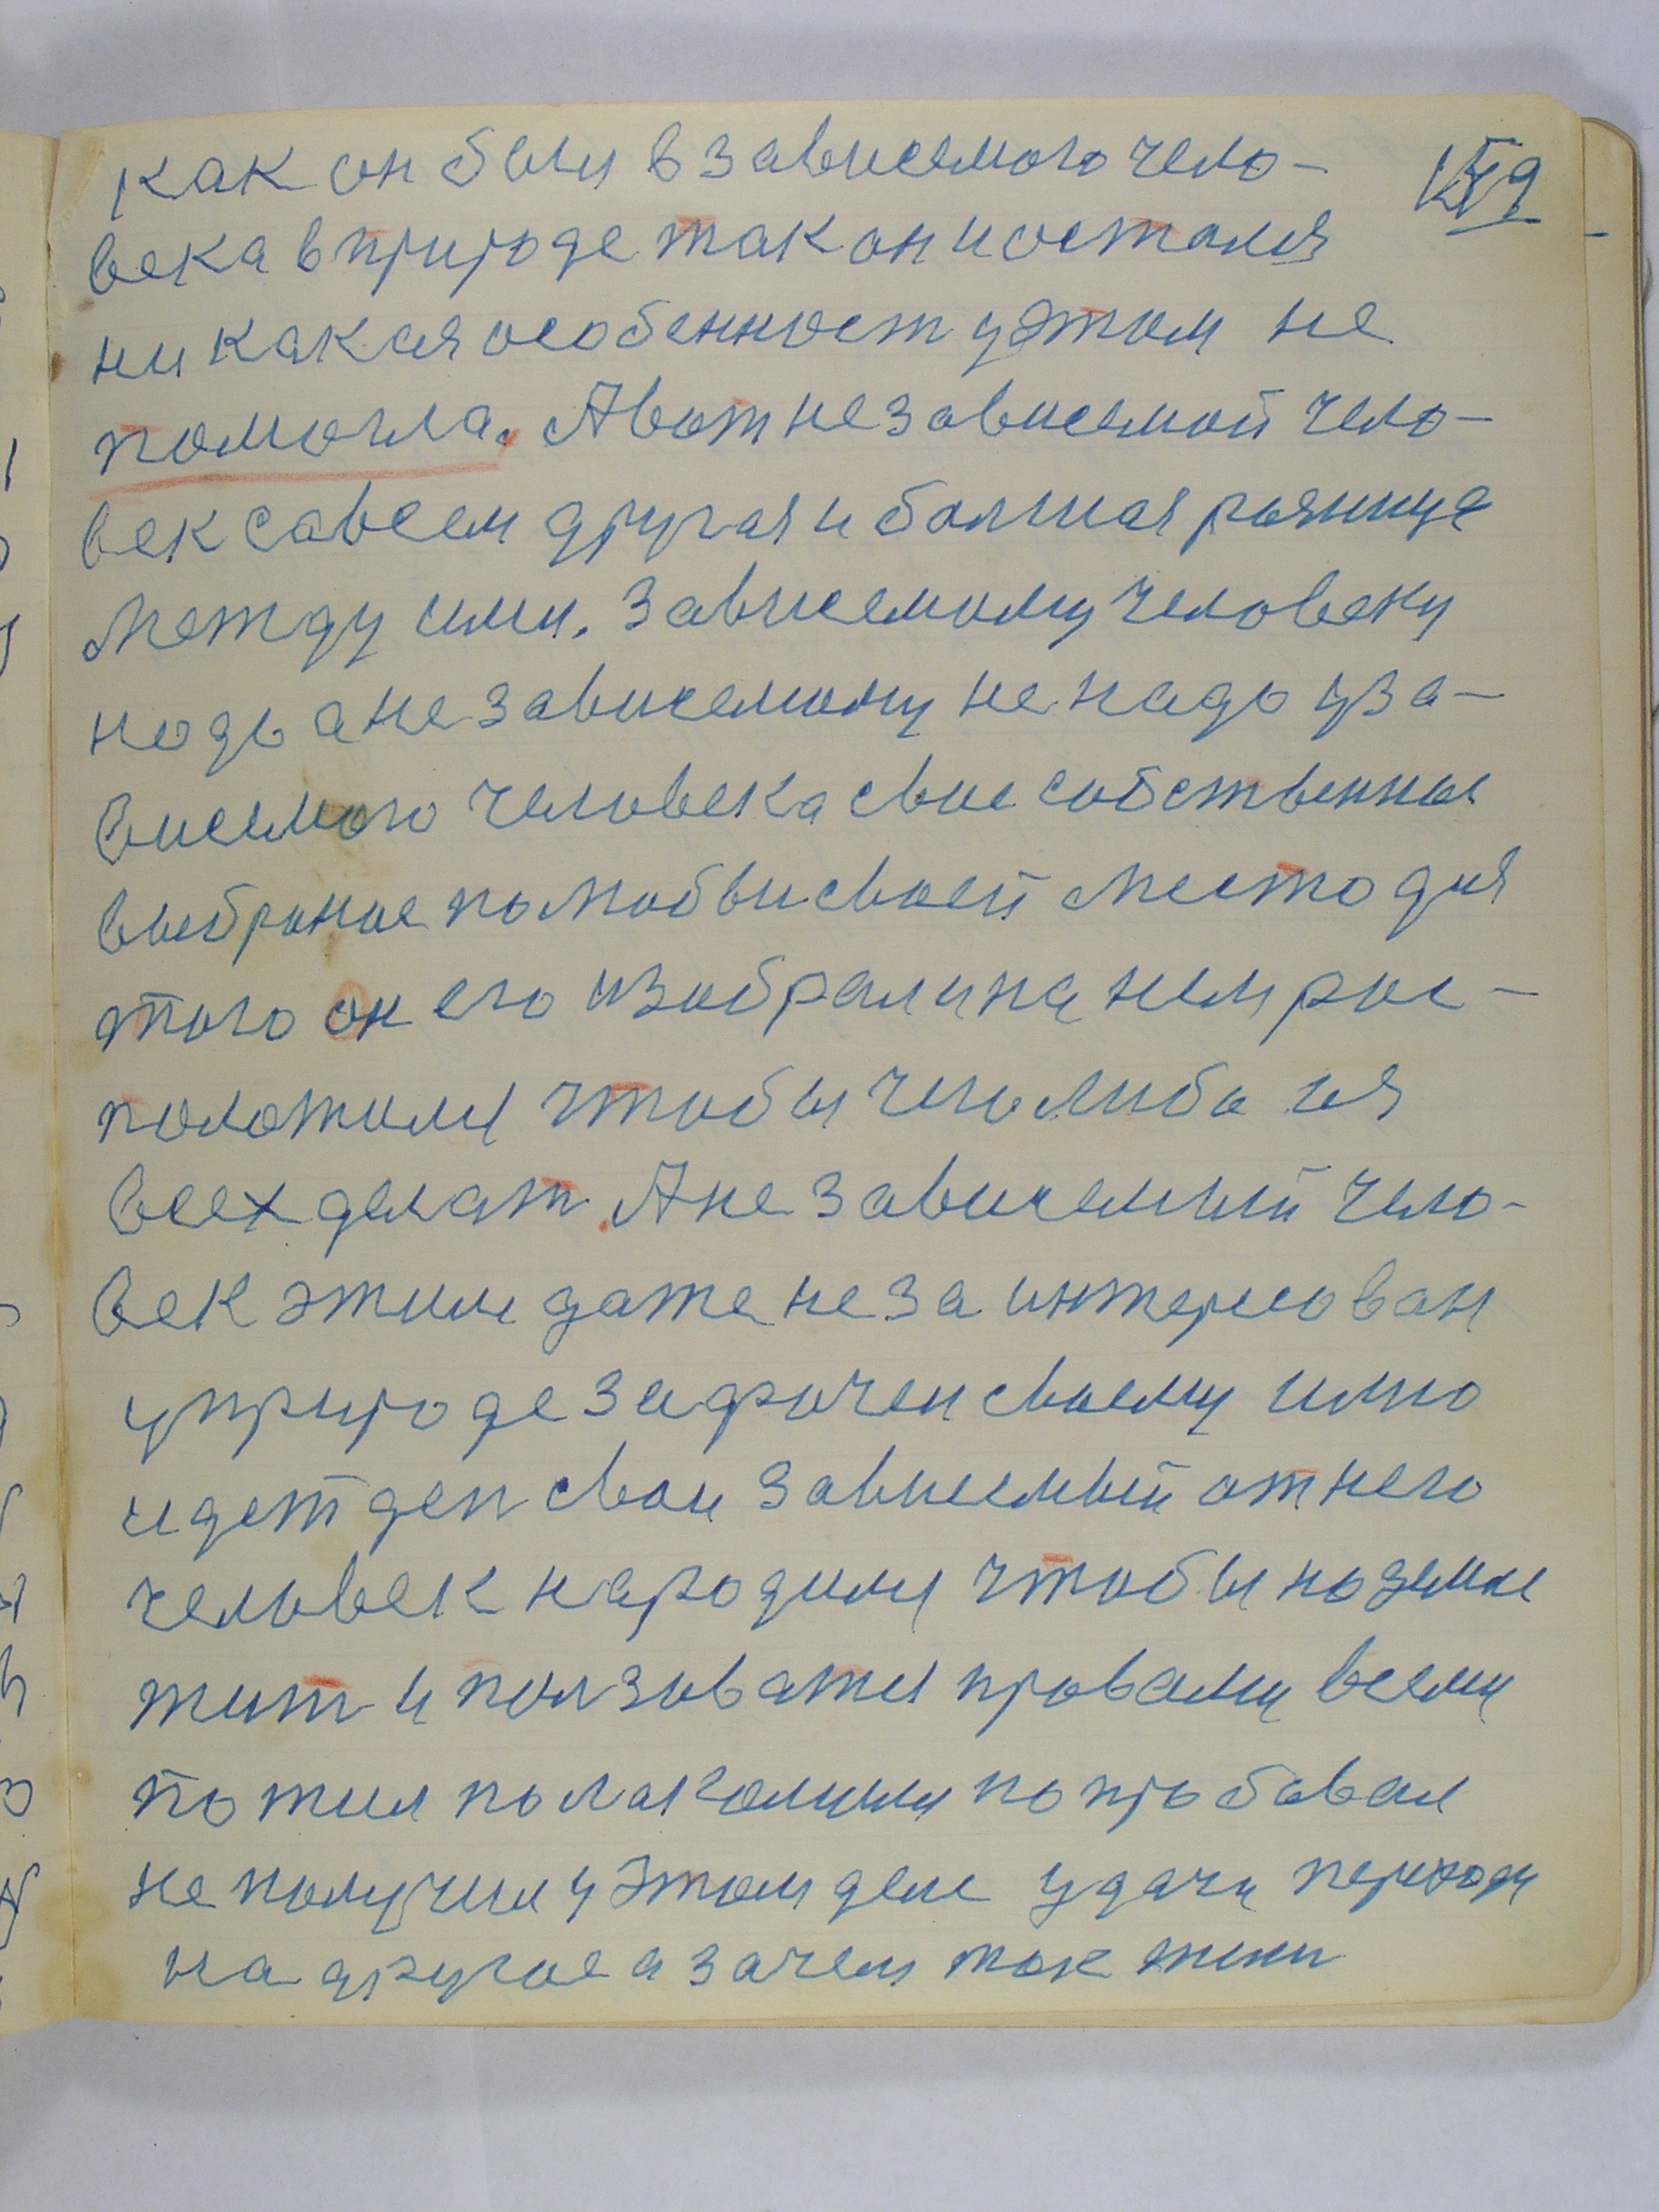 как он был в зависемого чело-
века в природе так он и остался
ни какая особенност у этом не
помогла. А вот не зависемой чело-
век савсем другая и болшая разница
между ими. Зависемому человеку
надо а не зависемому не надо у за-
висемого человека свое собственное
выбраное по любви своей место для
этого он его изобрал и на нем рос-
положился чтобы чего либо из
всех делат. А не зависемый чело-
век этим даже не заинтересован
у природе за своему имю
идет ден свои зависемый от него
человек народился чтобы на земле
жит и ползоватся провами всеми
пожил полакомился попробовал
не получил у этом деле удачи переход
на другое а зачем так жит